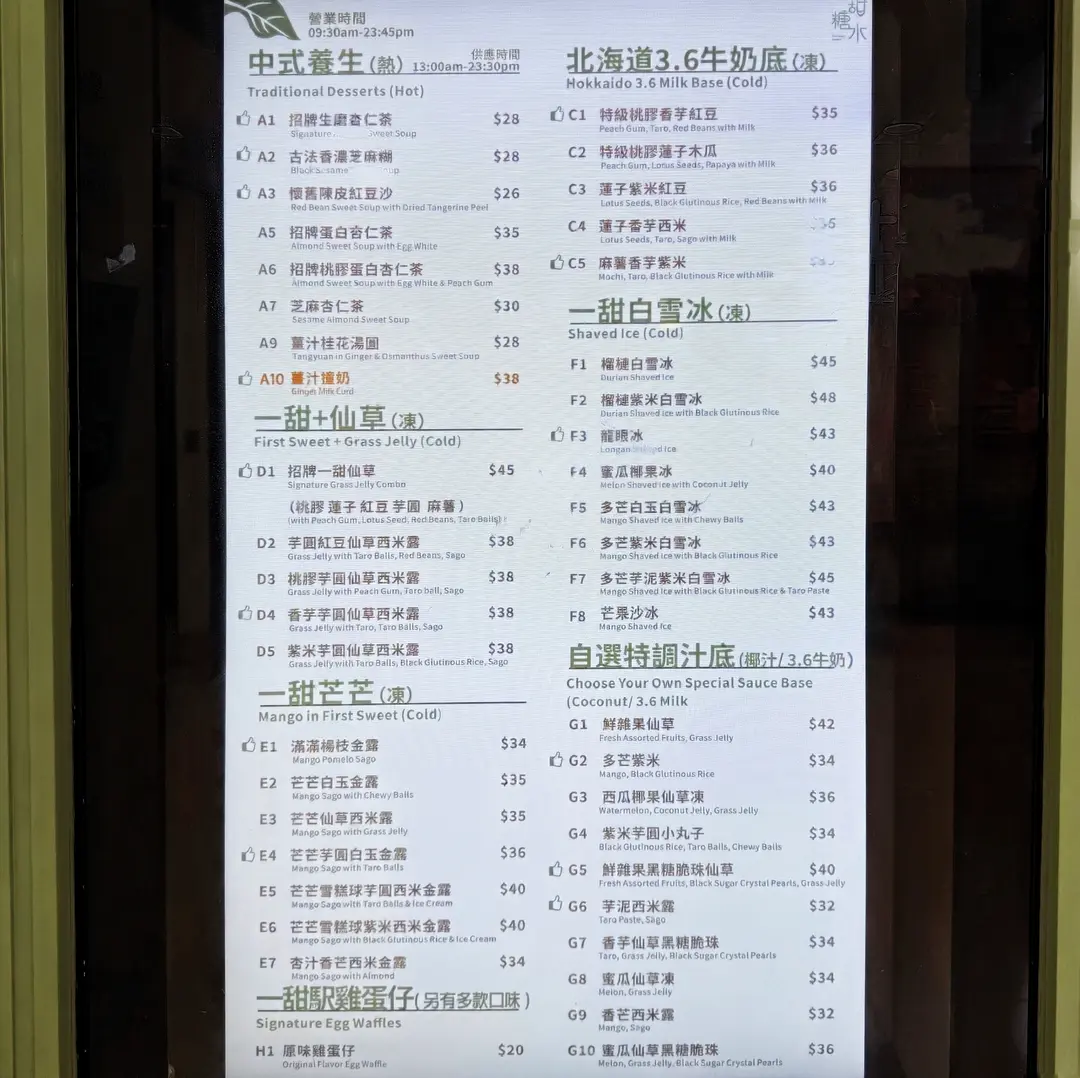 甜
糖水
營業時間
09:30am-23:45pm
中式養生(熱) 供應時間 13:00am-23:30pm
Traditional Desserts (Hot)
A1 招牌生磨杏仁茶 $28
Signature Sweet Soup
A2 古法香濃芝麻糊 $28
Black Sesame
A3 懷舊陳皮紅豆沙 $26
Red Bean Sweet Soup with Dried Tangerine Peel
A5 招牌蛋白杏仁茶 $35
Almond Sweet Soup with Egg White
A6 招牌桃膠蛋白杏仁茶 $38
Almond Sweet Soup with Egg White & Peach Gum
A7 芝麻杏仁茶 $30
Sesame Almond Sweet Soup
A9 薑汁桂花湯圓 $28
Tangyuan in Ginger & Osmanthus Sweet Soup
A10 薑汁撞奶 $38
Ginger Milk Curd
一甜+仙草(凍)
First Sweet + Grass Jelly (Cold)
D1 招牌一甜仙草 $45
Signature Grass Jelly Combo
(桃膠 蓮子 紅豆 芋圓 麻薯)
(with Peach Gum, Lotus Seed, Red Beans, Taro Balls)
D2 芋圓紅豆仙草西米露 $38
Grass Jelly with Taro Balls, Red Beans, Sago
D3 桃膠芋圓仙草西米露 $38
Grass Jelly with Peach Gum, Taro ball, Sago
D4 香芋芋圓仙草西米露 $38
Grass Jelly with Taro, Taro Balls, Sago
D5 紫米芋圓仙草西米露 $38
Grass Jelly with Taro Balls, Black Glutinous Rice, Sago
一甜芒芒(凍)
Mango in First Sweet (Cold)
E1 滿滿楊枝金露 $34
Mango Pomelo Sago
E2 芒芒白玉金露 $35
Mango Sago with Chewy Balls
E3 芒芒仙草西米露 $35
Mango Sago with Grass Jelly
E4 芒芒芋圓白玉金露 $36
Mango Sago with Taro Balls
E5 芒芒雪糕球芋圓西米金露 $40
Mango Sago with Taro Balls & Ice Cream
E6 芒芒雪糕球紫米西米金露 $40
Mango Sago with Black Glutinous Rice & Ice Cream
E7 杏汁香芒西米金露 $34
Mango Sago with Almond
一甜駅雞蛋仔(另有多款口味)
Signature Egg Waffles
H1 原味雞蛋仔 $20
Original Flavor Egg Waffle
北海道3.6牛奶底(凍)
Hokkaido 3.6 Milk Base (Cold)
C1 特級桃膠香芋紅豆 $35
Peach Gum, Taro, Red Beans with Milk
C2 特級桃膠蓮子木瓜 $36
Peach Gum, Lotus Seeds, Papaya with Milk
C3 蓮子紫米紅豆 $36
Lotus Seeds, Black Glutinous Rice, Red Beans with Milk
C4 蓮子香芋西米
Lotus Seeds, Taro, Sago with Milk
C5 麻薯香芋紫米
Mochi, Taro, Black Glutinous Rice with Milk
一甜白雪冰(凍)
Shaved Ice (Cold)
F1 榴槤白雪冰 $45
Durian Shaved Ice
F2 榴槤紫米白雪冰 $48
Durian Shaved Ice with Black Glutinous Rice
F3 龍眼冰 $43
Longan Shaved Ice
F4 蜜瓜椰果冰 $40
Melon Shaved Ice with Coconut Jelly
F5 多芒白玉白雪冰 $43
Mango Shaved Ice with Chewy Balls
F6 多芒紫米白雪冰 $43
Mango Shaved Ice with Black Glutinous Rice
F7 多芒芋泥紫米白雪冰 $45
Mango Shaved Ice with Black Glutinous Rice & Taro Paste
F8 芒果沙冰 $43
Mango Shaved Ice
自選特調汁底(椰汁/3.6牛奶)
Choose Your Own Special Sauce Base
(Coconut/ 3.6 Milk
G1 鮮雜果仙草 $42
Fresh Assorted Fruits, Grass Jelly
G2 多芒紫米 $34
Mango, Black Glutinous Rice
G3 西瓜椰果仙草凍 $36
Watermelon, Coconut Jelly, Grass Jelly
G4 紫米芋圓小丸子 $34
Black Glutinous Rice, Taro Balls, Chewy Balls
G5 鮮雜果黑糖脆珠仙草 $40
Fresh Assorted Fruits, Black Sugar Crystal Pearls, Grass Jelly
G6 芋泥西米露 $32
Taro Paste, Sago
G7 香芋仙草黑糖脆珠 $34
Taro, Grass Jelly, Black Sugar Crystal Pearls
G8 蜜瓜仙草凍 $34
Melon, Grass Jelly
G9 香芒西米露 $32
Mango, Sago
G10 蜜瓜仙草黑糖脆珠 $36
Melon, Grass Jelly, Black Sugar Crystal Pearls